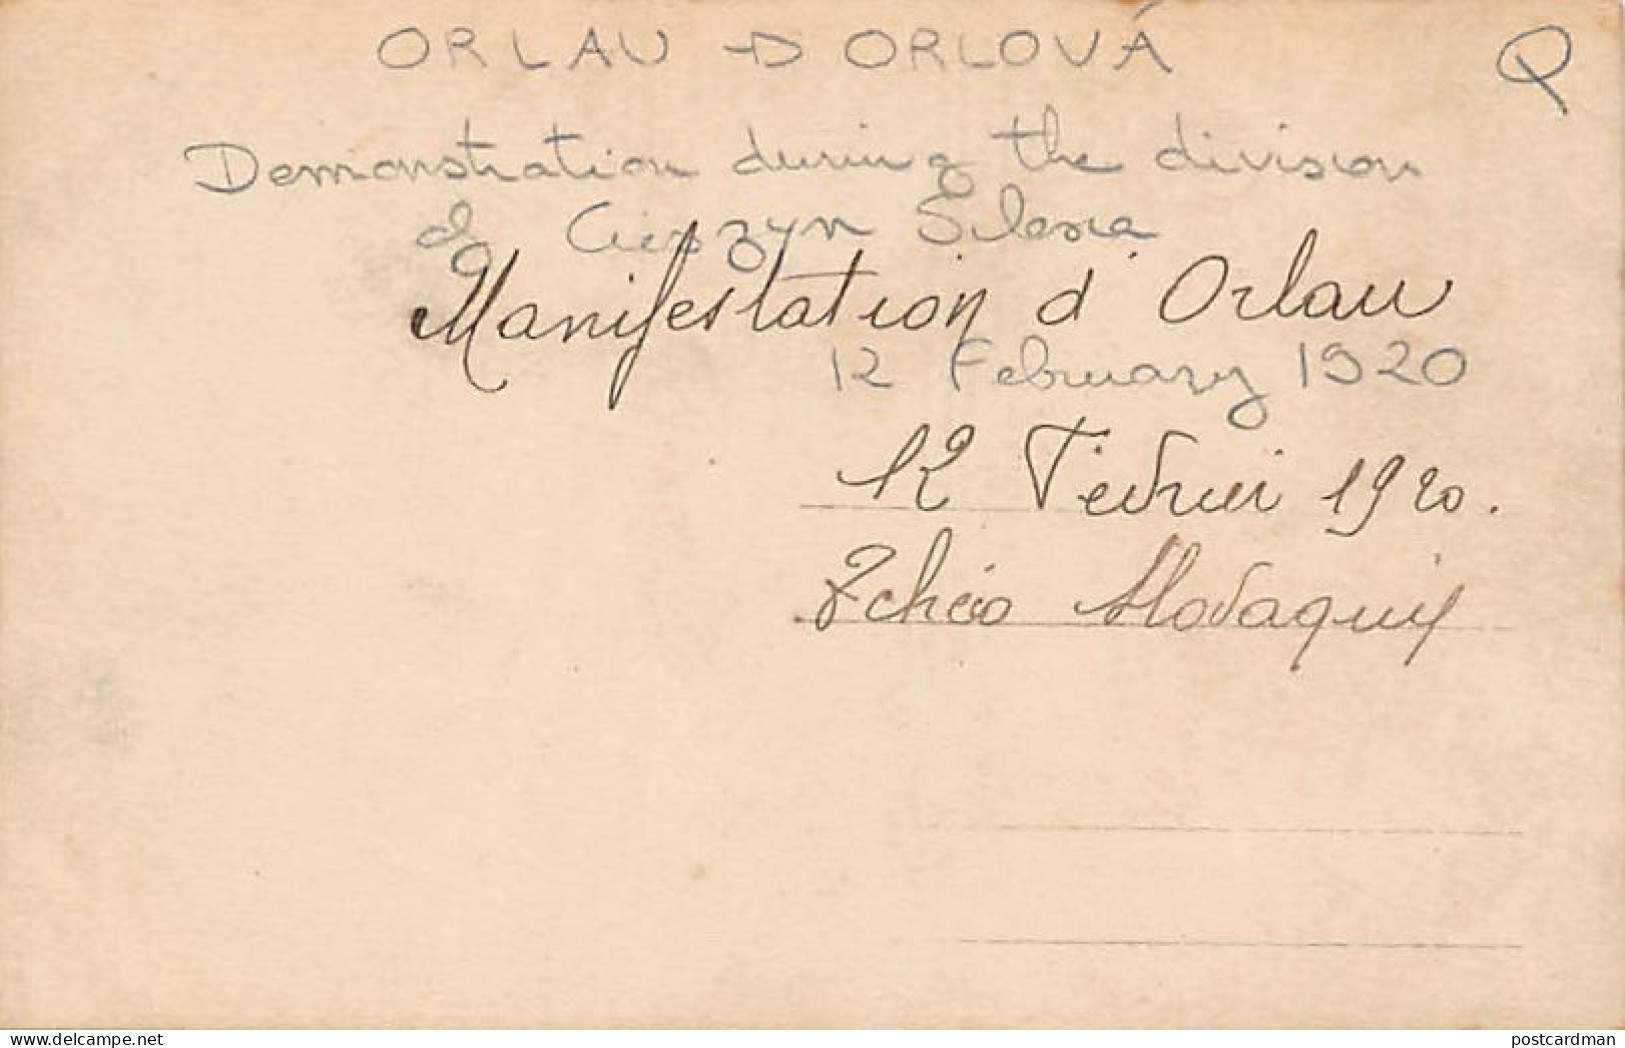 ORLAU → ORLOVÁ
Demonstration during the division
of Cieszyn Silesia
Manifestation d'Orlau
12 February 1920
12 Fevrier 1920.
Tchéco Slovaquie
delcampe.net
postcardman